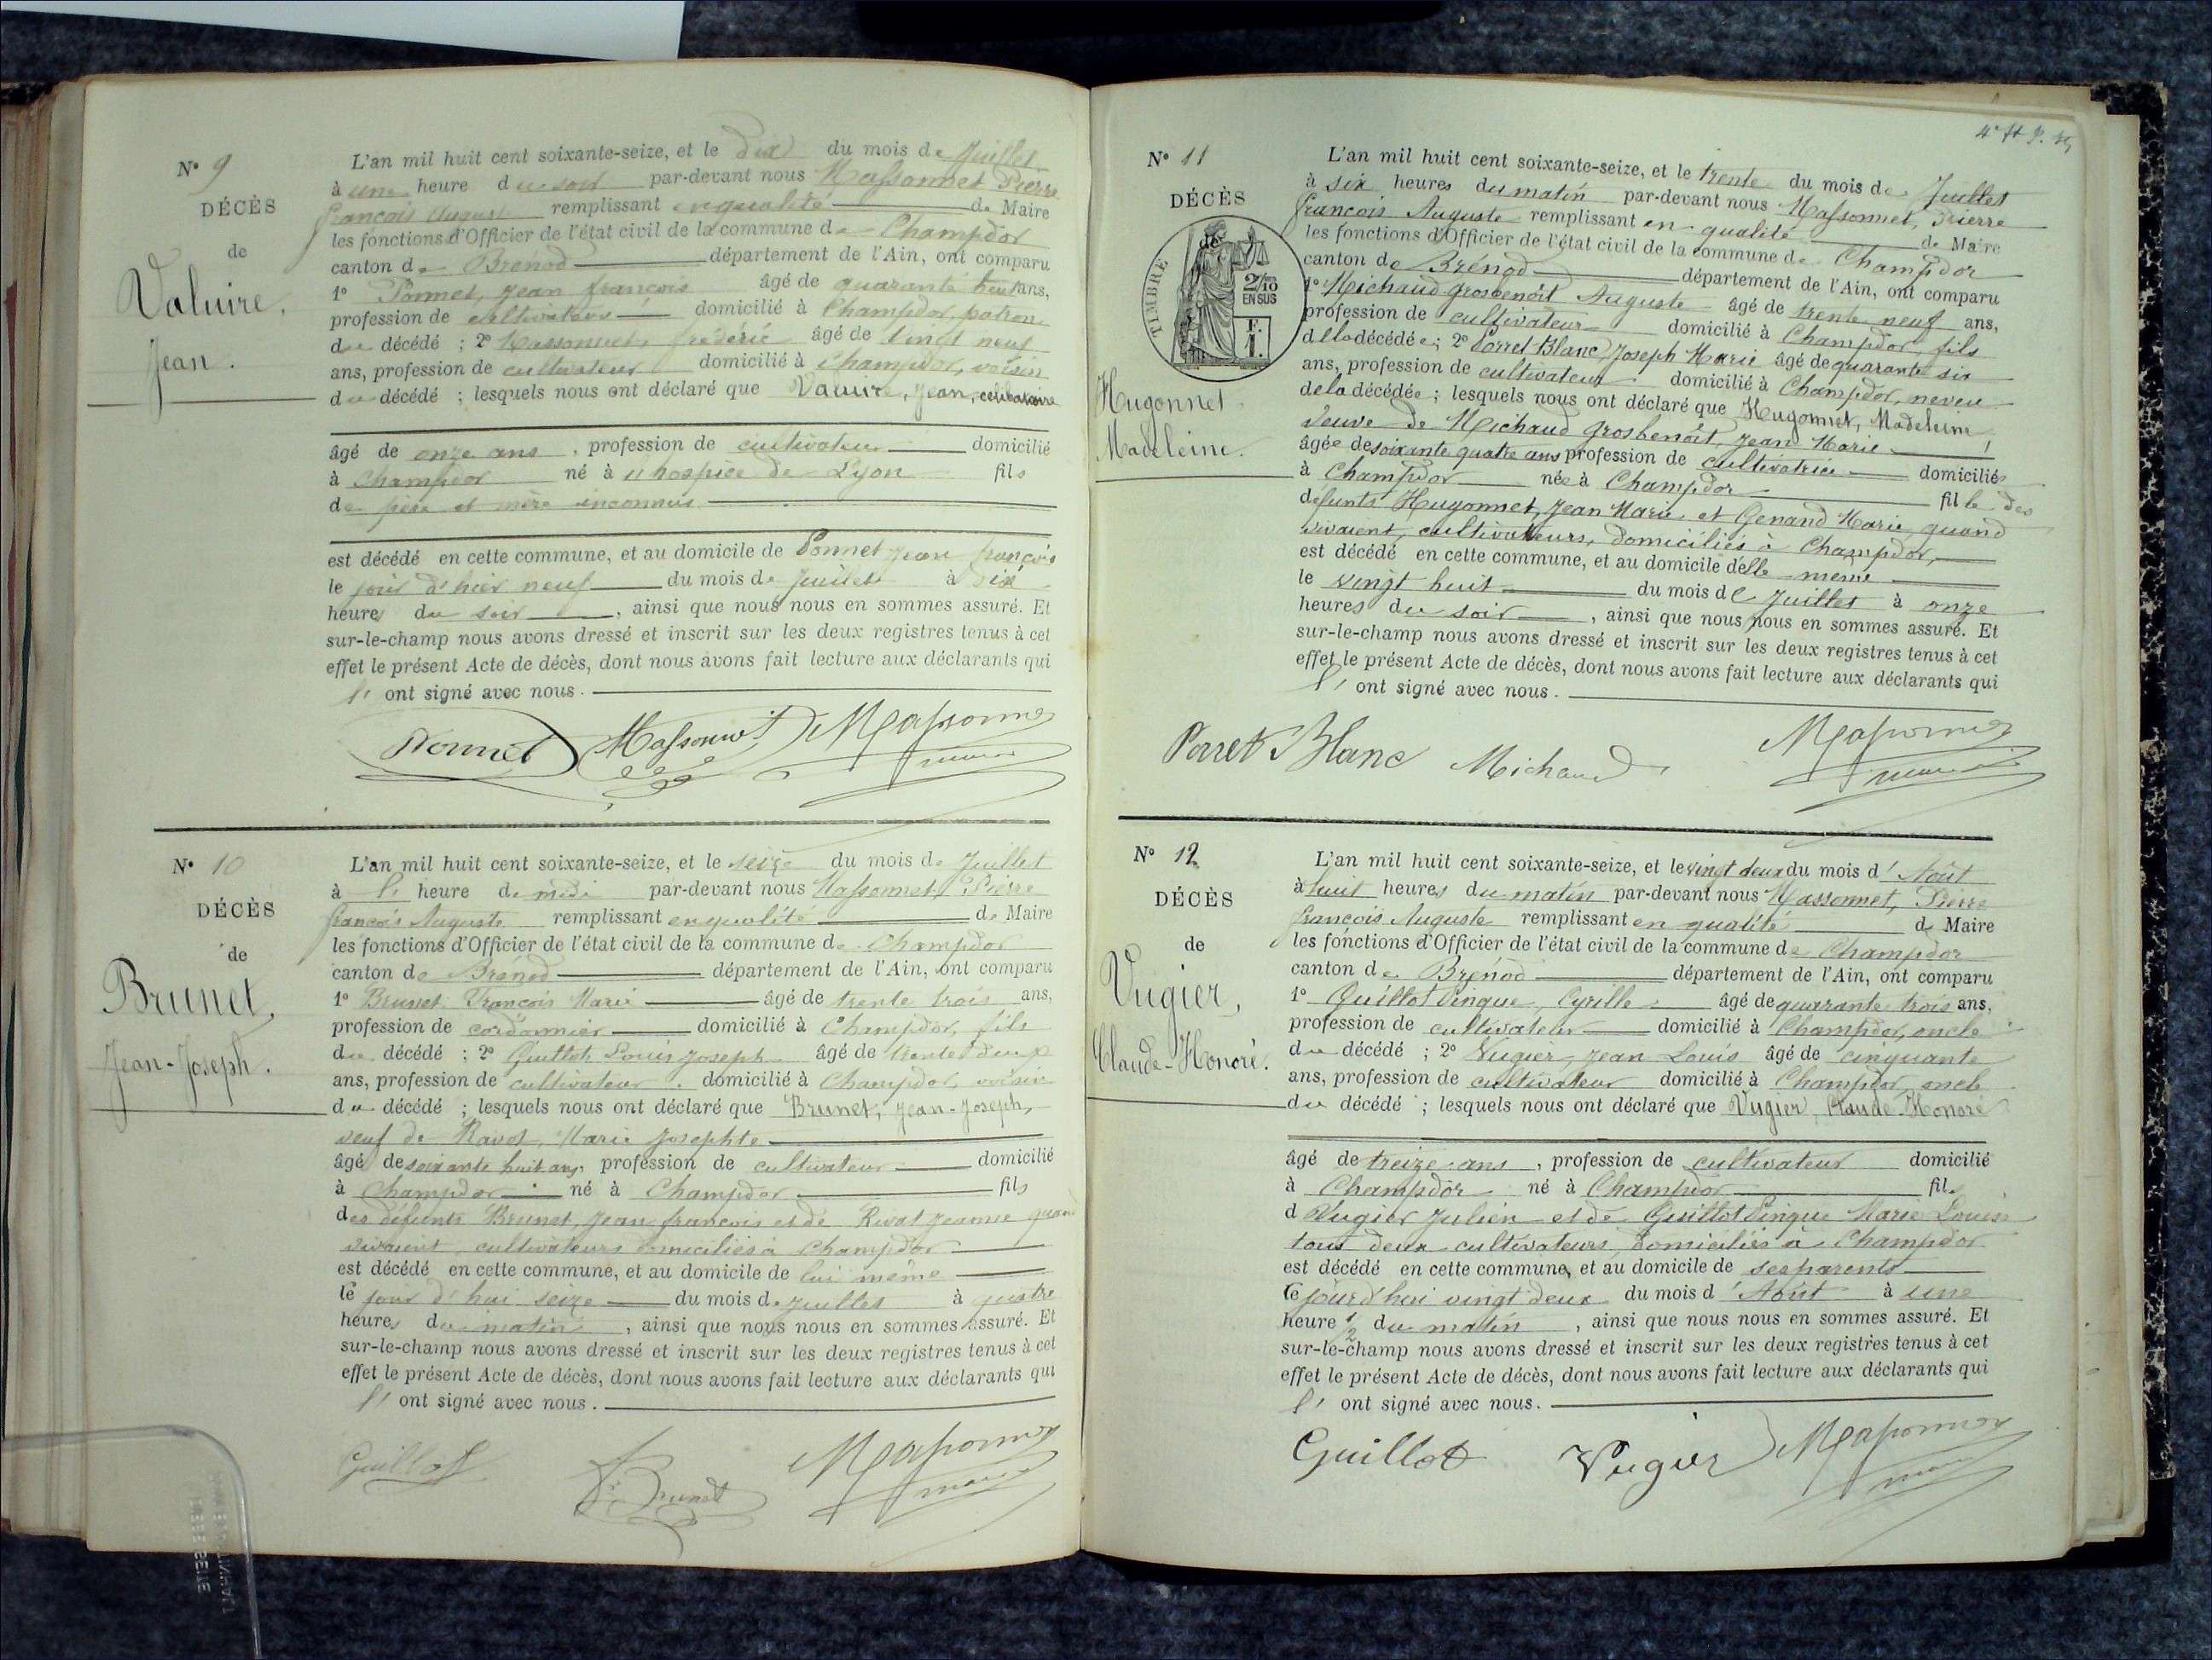 N° 9
DÉCÈS
de
Valuire,
Jean.
L'an mil huit cent soixante-seize, et le dix du mois de Juillet
à une heure du soir par-devant nous Massonnet Pierre
françois Auguste remplissant en qualité de Maire
les fonctions d'Officier de l'état civil de la commune de Champdor
canton de Brénod département de l'Ain, ont comparu
1° Ponnet, Jean françois âgé de quarante huit ans,
profession de cultivateur domicilié à Champdor, patron
du décédé ; 2° Massonnet, frédéric âgé de vingt neuf
ans, profession de cultivateur domicilié à Champdor, voisin
du décédé ; lesquels nous ont déclaré que Valuire, Jean, célibataire
âgé de onze ans, profession de cultivateur domicilié
à Champdor né à l'hospice de Lyon fils
de père et mère inconnus
est décédé en cette commune, et au domicile de Ponnet Jean françois
le jour d'hier neuf du mois de Juillet à six
heures du soir, ainsi que nous nous en sommes assuré. Et
sur-le-champ nous avons dressé et inscrit sur les deux registres tenus à cet
effet le présent Acte de décès, dont nous avons fait lecture aux déclarants qui
l' ont signé avec nous.
Ponnet Massonnet Massonnet
maire
N° 10
DÉCÈS
de
Brunet,
Jean-Joseph.
L'an mil huit cent soixante-seize, et le seize du mois de Juillet
à l' heure de midi par-devant nous Massonnet, Pierre
françois Auguste remplissant en qualité de Maire
les fonctions d'Officier de l'état civil de la commune de Champdor
canton de Brénod département de l'Ain, ont comparu
1° Brunet François Marie âgé de trente trois ans,
profession de cordonnier domicilié à Champdor, fils
du décédé ; 2° Guillot Louis Joseph âgé de trente deux
ans, profession de cultivateur. domicilié à Champdor, voisin
du décédé ; lesquels nous ont déclaré que Brunet, Jean-Joseph,
veuf de Ravot, Marie Josephte
âgé de soixante huit ans, profession de cultivateur domicilié
à Champdor né à Champdor fils
des défunts Brunet, Jean françois et de Rivat Jeanne quand
vivaient cultivateurs domiciliés à Champdor
est décédé en cette commune, et au domicile de lui même
le jour d'hui seize du mois de Juillet à quatre
heures du matin, ainsi que nous nous en sommes assuré. Et
sur-le-champ nous avons dressé et inscrit sur les deux registres tenus à cet
effet le présent Acte de décès, dont nous avons fait lecture aux déclarants qui
l' ont signé avec nous.
Guillot Brunet Massonnet
maire
N° 11
DÉCÈS
de
TIMBRE
2/10
EN SUS
F.
1.
Hugonnet
Madeleine.
L'an mil huit cent soixante-seize, et le trente du mois de Juillet
à six heures du matin par-devant nous Massonnet, Pierre
françois Auguste remplissant en qualité de Maire
les fonctions d'Officier de l'état civil de la commune de Champdor
canton de Brénod département de l'Ain, ont comparu
1° Michaud Grosbenoit Auguste âgé de trente neuf ans,
profession de cultivateur domicilié à Champdor, fils
de la décédée ; 2° Porret Blanc, Joseph Marie âgé de quarante six
ans, profession de cultivateur domicilié à Champdor, neveu
de la décédée ; lesquels nous ont déclaré que Hugonnet, Madeleine,
veuve de Michaud Grosbenoit, Jean Marie
âgée de soixante quatre ans profession de cultivatrice domiciliée
à Champdor née à Champdor fille des
défunts Hugonnet, Jean Marie et Genand Marie, quand
vivaient, cultivateurs, domiciliés à Champdor,
est décédé en cette commune, et au domicile d'elle même
le vingt huit du mois de Juillet à onze
heures du soir, ainsi que nous nous en sommes assuré. Et
sur-le-champ nous avons dressé et inscrit sur les deux registres tenus à cet
effet le présent Acte de décès, dont nous avons fait lecture aux déclarants qui
l' ont signé avec nous.
Porret Blanc Michaud Massonnet
maire
N° 12
DÉCÈS
de
Vugier,
Claude-Honoré.
L'an mil huit cent soixante-seize, et le vingt deux du mois d'Août
à huit heures du matin par-devant nous Massonnet, Pierre
françois Auguste remplissant en qualité de Maire
les fonctions d'Officier de l'état civil de la commune de Champdor
canton de Brénod département de l'Ain, ont comparu
1° Guillot Pingue, Cyrille âgé de quarante trois ans,
profession de cultivateur domicilié à Champdor, oncle
du décédé ; 2° Vugier, Jean Louis âgé de cinquante
ans, profession de cultivateur domicilié à Champdor, oncle
du décédé ; lesquels nous ont déclaré que Vugier, Claude-Honoré
âgé de treize ans, profession de cultivateur domicilié
à Champdor né à Champdor fils
d Vugier Julien et de Guillot Pingue Marie Louise
tous deux cultivateurs, domiciliés à Champdor
est décédé en cette commune, et au domicile de ses parents
le jour d'hui vingt deux du mois d'Août à une
heure 1/2 du matin, ainsi que nous nous en sommes assuré. Et
sur-le-champ nous avons dressé et inscrit sur les deux registres tenus à cet
effet le présent Acte de décès, dont nous avons fait lecture aux déclarants qui
l' ont signé avec nous.
Guillot Vugier Massonnet
maire